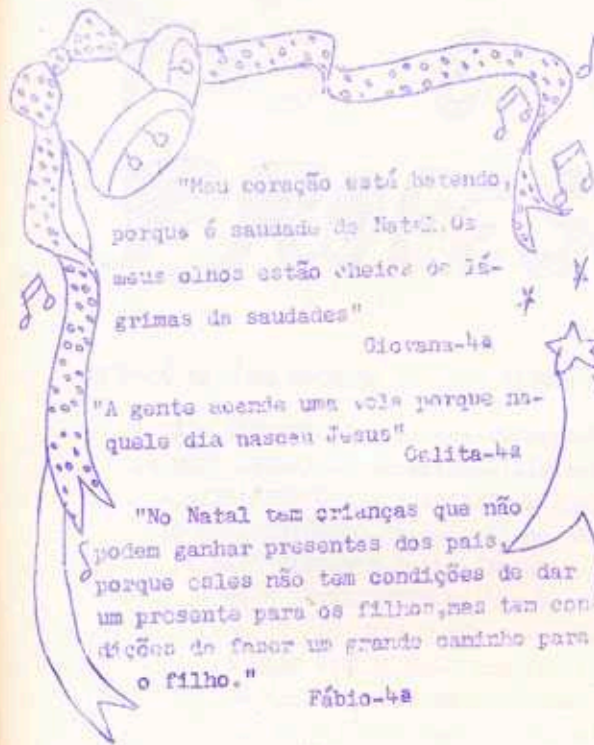 "Meu coração está batendo,
porque é saudade do Natal.Os
meus olhos estão cheios de lá-
grimas de saudades"
Giovana-4ª
"A gente acende uma vela porque na-
quele dia nasceu Jesus"
-4ª
"No Natal tem crianças que não
podem ganhar presentes dos pais,
porque eles não tem condições de dar
um presente para os filhos,mas tem con-
dições de fazer um grande caminho para
o filho."
Fábio-4ª